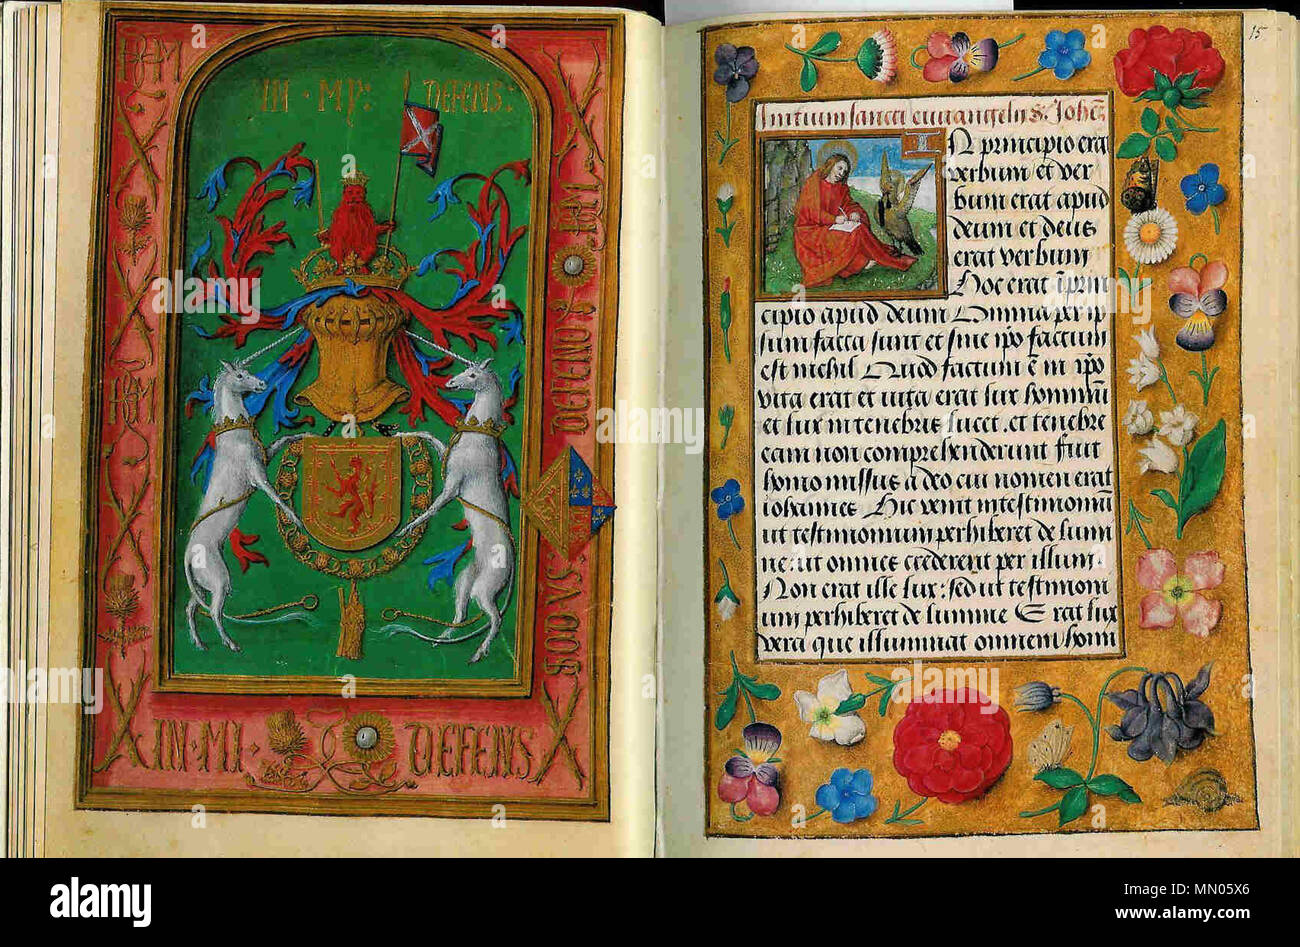 IN · MY: DEFENS:
IN · MI · DEFENS
15
Initium sancti euvangelij S. Johēs
In principio erat
verbum et ver
bum erat apud
deum et deus
erat verbum
Hoc erat ī prin
cipio apud deum Omnia per ip
sum facta sunt et sine ipō factum
est nichil Quod factum ē in ipō
vita erat et vita erat lux hominū
et lux in tenebris lucet. et tenebre
eam non comprehenderunt fuit
homo missus a deo cui nomen erat
iohannes Hic venit in testimoniū
ut testimonium perhiberet de lumi
ne. ut omnes crederent per illum.
Non erat ille lux: sed ut testimoni
um perhiberet de lumine Erat lux
vera que illuminat omnem homi
alamy
MN05X6
www.alamy.com